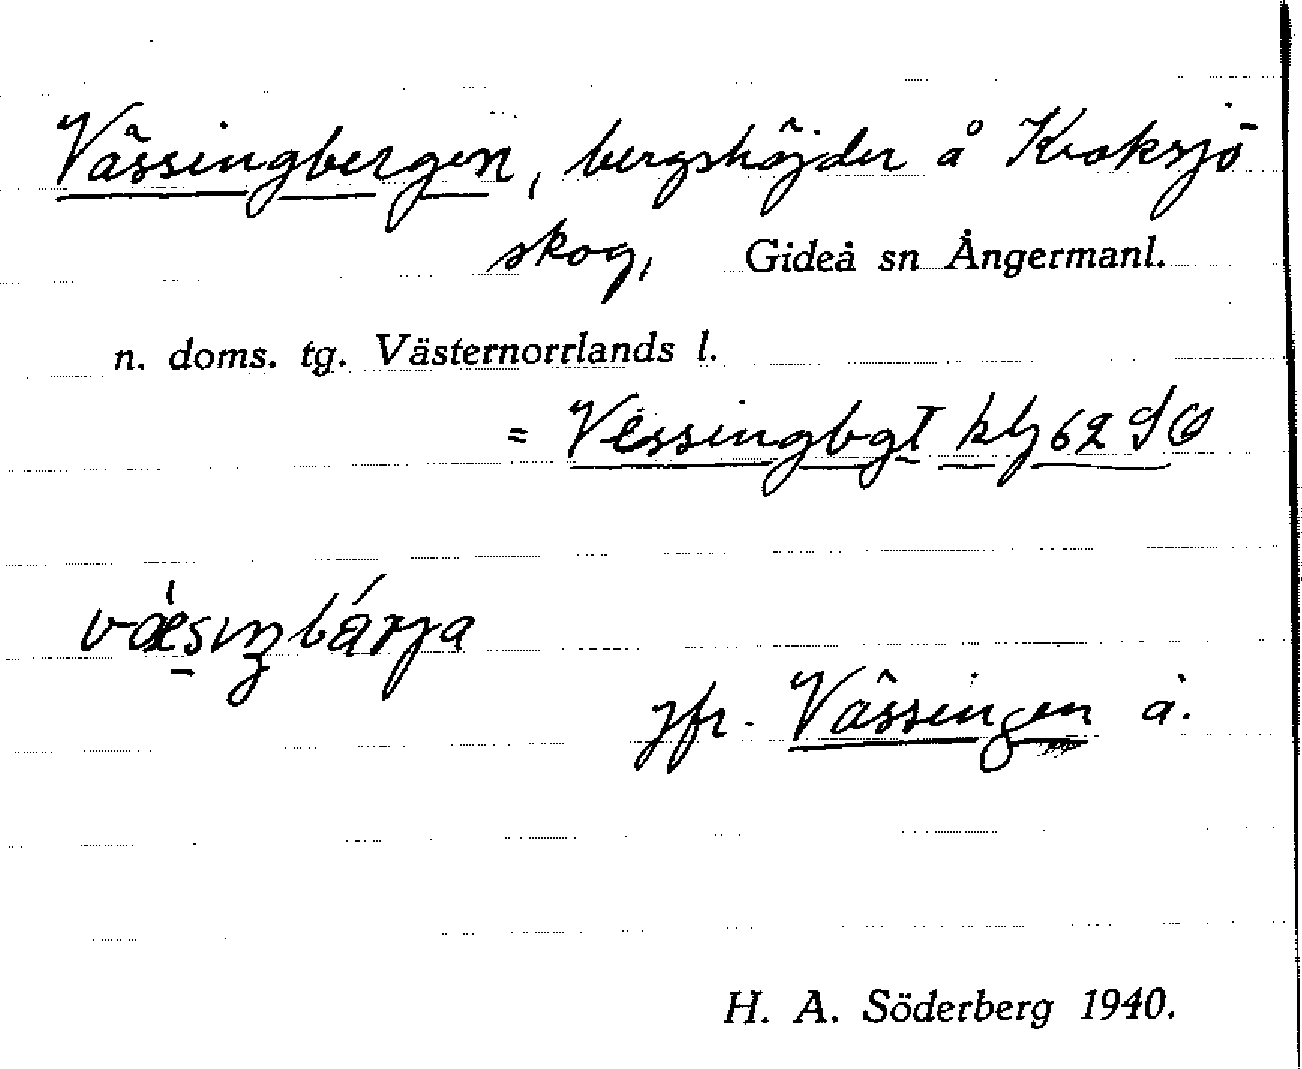 Vässingbergen, bergshöjder å Kroksjö
skog, Gideå sn Ångermanl.
n. doms. tg. Västernorrlands l.
= Vessingbgt kbl 62 SO
jfr. Vässingen å.
H. A. Söderberg 1940.